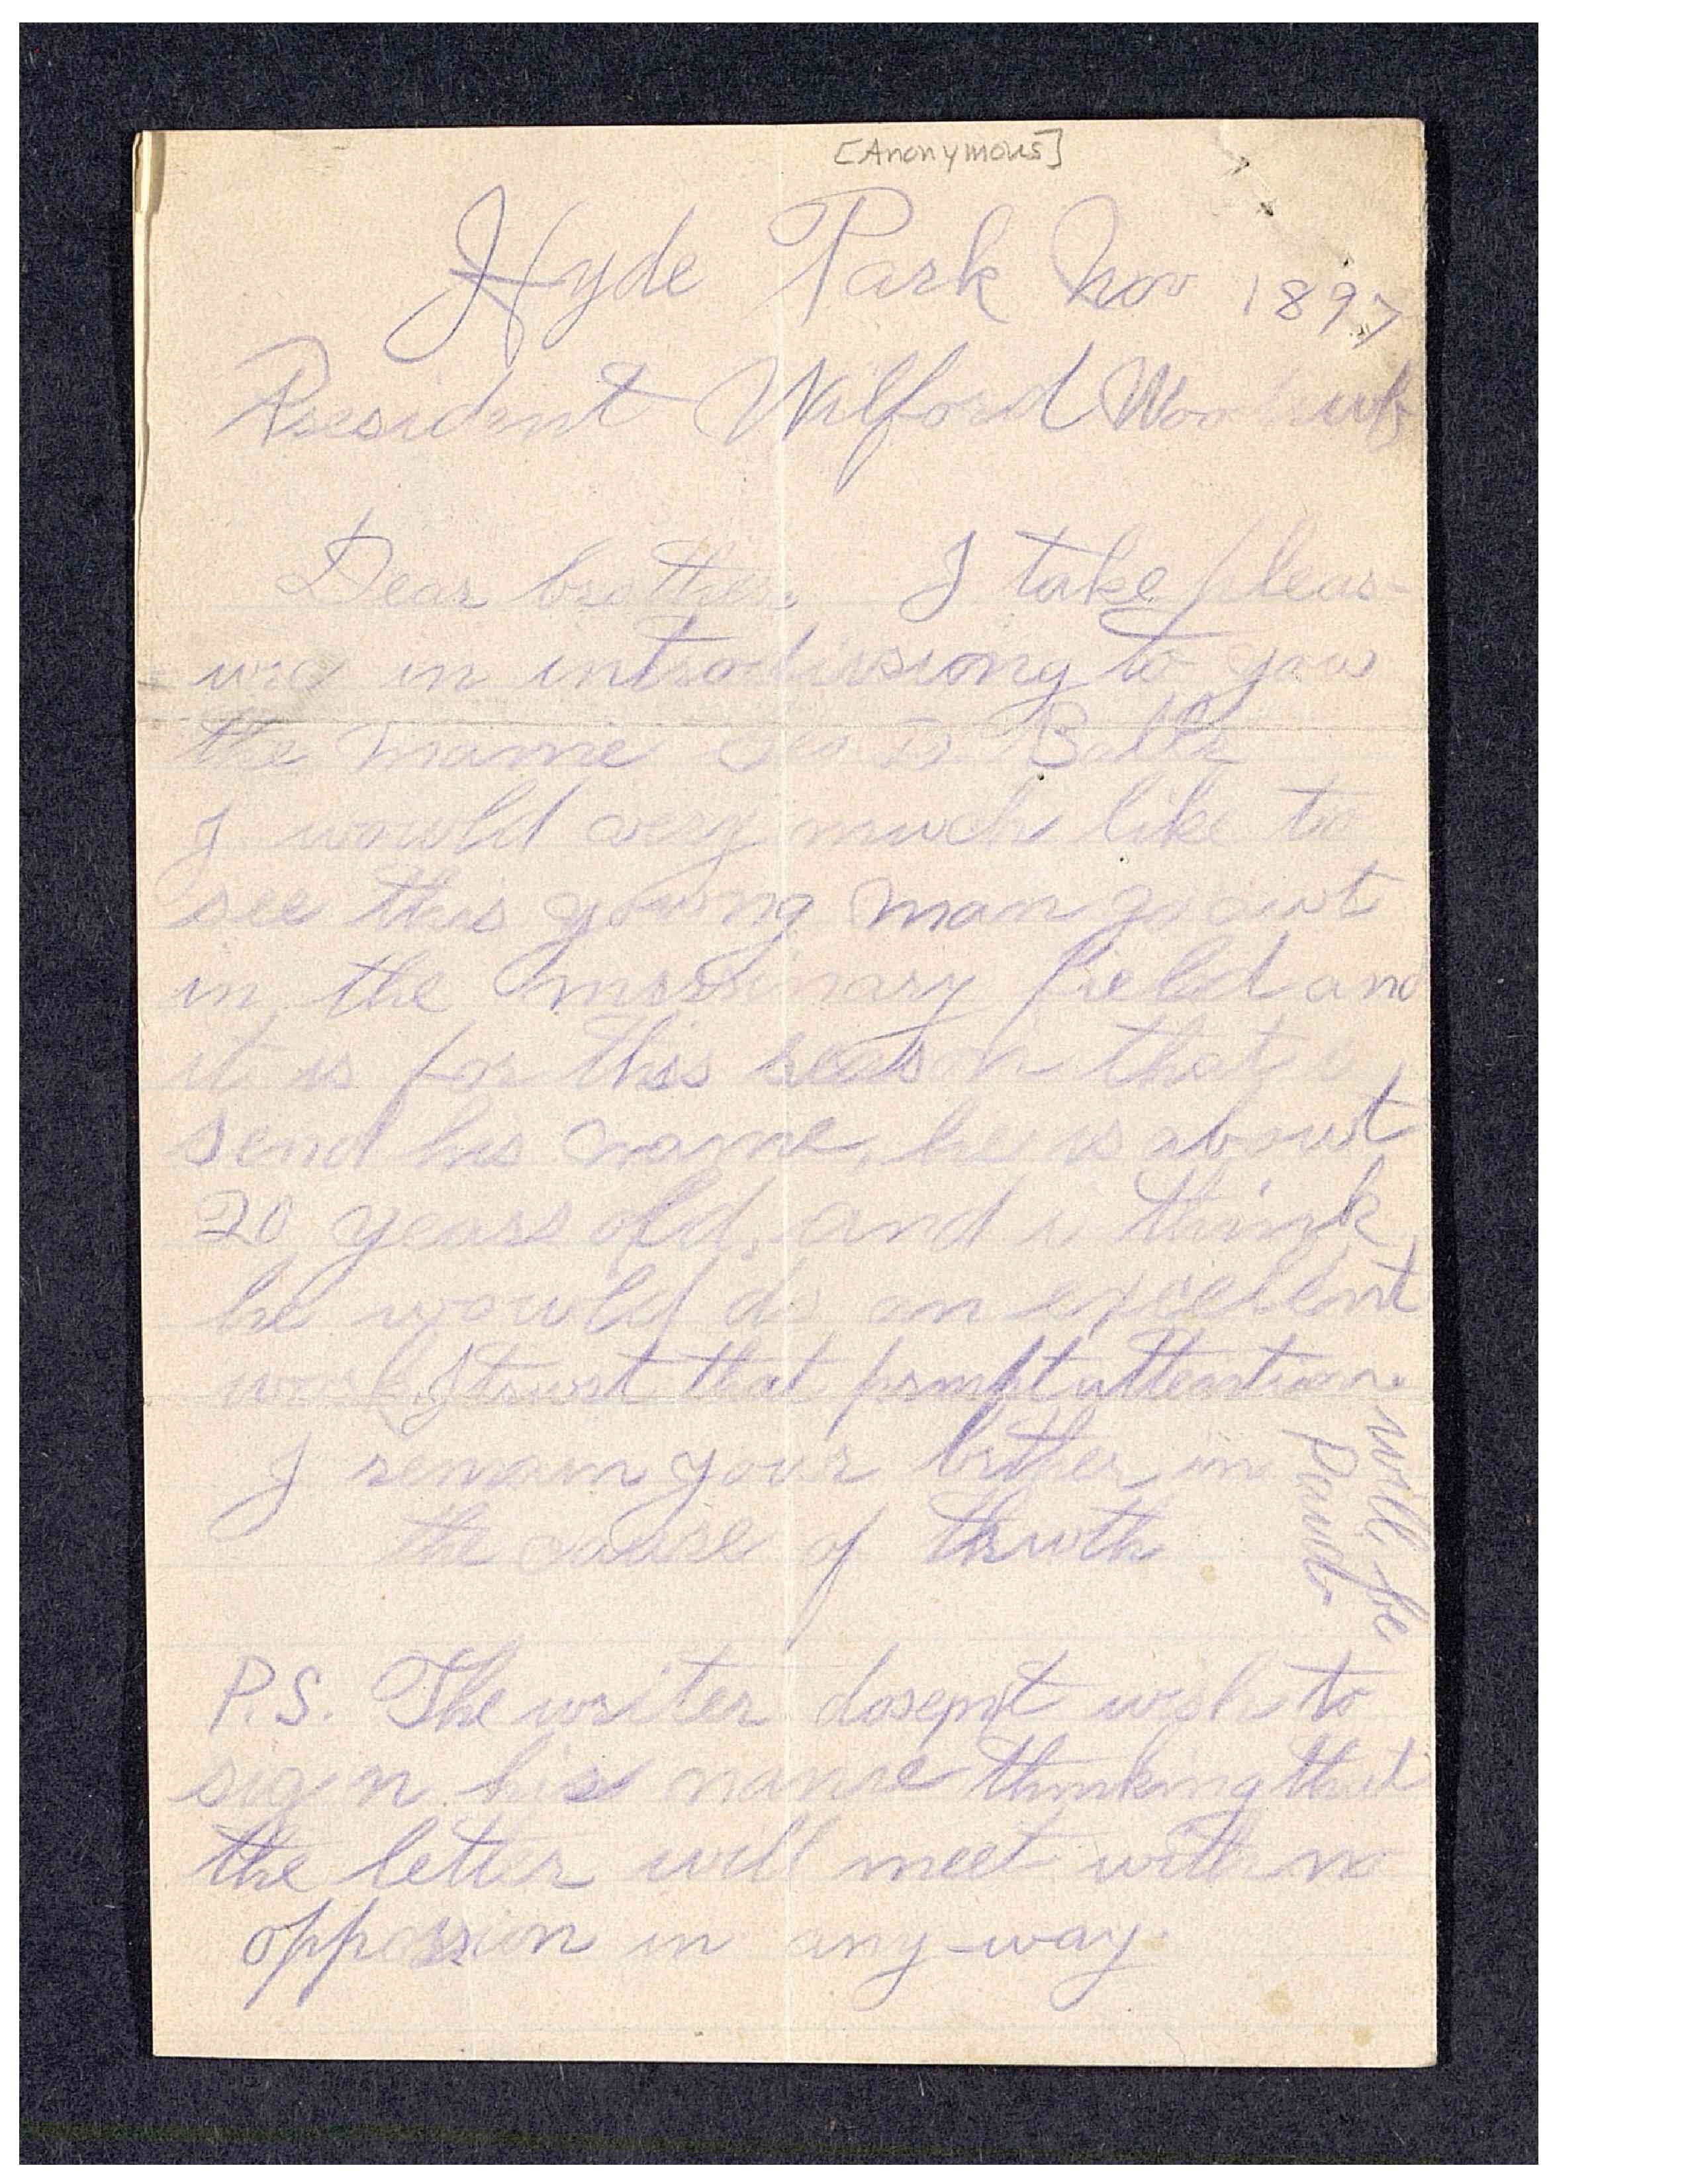 [Anonymous]
Hyde Park Nov 1897
President Wilford Woodruff
Dear brother. I take pleas-
ure in introdusiong to you
the name Geo D. Balls
I would very much like to
see this young man go out
in the missinary field and
it is for this reason that i
send his name, he is about
20 years old, and i think
he would do an excellent
work, I trust that prmpt attention
will be
paid
I remain your brther in
the cause of thruth
P.S. The writer dosen't wish to
sign his name thinking that
the letter will meet with no
oppossion in any-way.